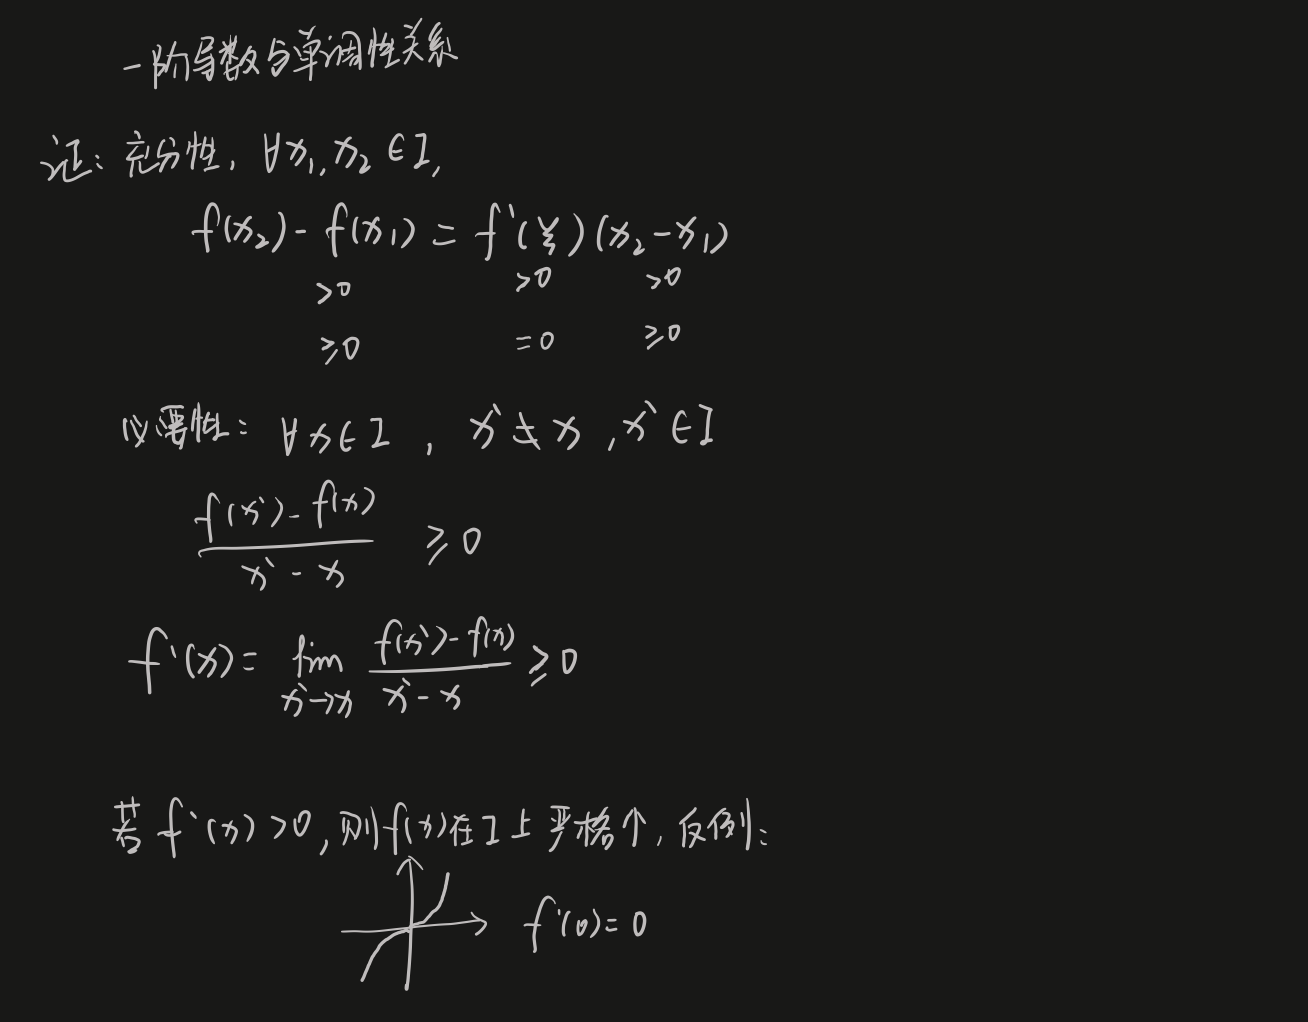 一阶导数与单调性关系
证：充分性，∀x₁,x₂∈I,
f(x₂)-f(x₁)=f'(ξ)(x₂-x₁)
>0 >0 >0
≥0 =0 ≥0
必要性：∀x∈I，x'≠x，x'∈I
(f(x')-f(x))/(x'-x) ≥0
f'(x)=lim_{x'→x} (f(x')-f(x))/(x'-x) ≥0
若f'(x)>0,则f(x)在I上严格个,反例：
f'(0)=0